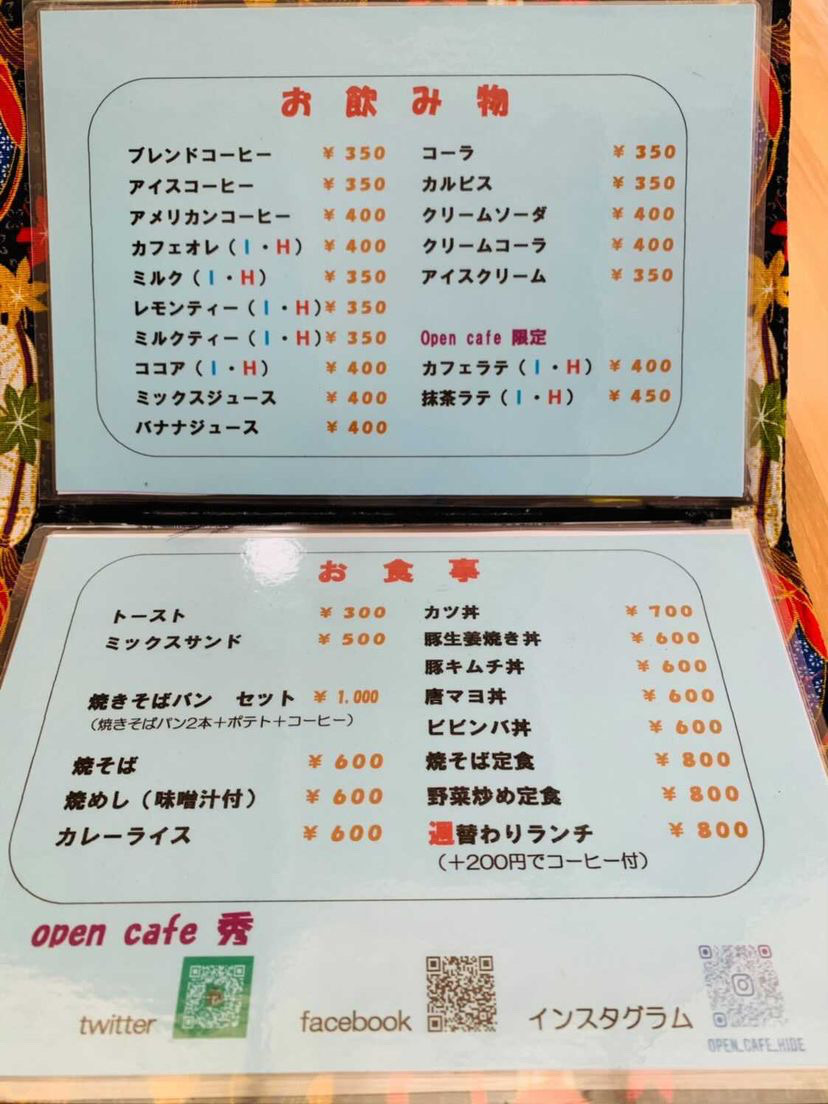 お飲み物
ブレンドコーヒー ¥350
アイスコーヒー ¥350
アメリカンコーヒー ¥400
カフェオレ(I・H) ¥400
ミルク(I・H) ¥350
レモンティー(I・H)¥350
ミルクティー(I・H)¥350
ココア(I・H) ¥400
ミックスジュース ¥400
バナナジュース ¥400
コーラ ¥350
カルピス ¥350
クリームソーダ ¥400
クリームコーラ ¥400
アイスクリーム ¥350
Open cafe 限定
カフェラテ(I・H) ¥400
抹茶ラテ(I・H) ¥450
お食事
トースト ¥300
ミックスサンド ¥500
焼きそばパン セット ¥1,000
(焼きそばパン2本+ポテト+コーヒー)
焼そば ¥600
焼めし(味噌汁付) ¥600
カレーライス ¥600
カツ丼 ¥700
豚生姜焼き丼 ¥600
豚キムチ丼 ¥600
唐マヨ丼 ¥600
ビビンバ丼 ¥600
焼そば定食 ¥800
野菜炒め定食 ¥800
週替わりランチ ¥800
(+200円でコーヒー付)
open cafe 秀
twitter
facebook
インスタグラム
OPEN_CAFE_HIDE